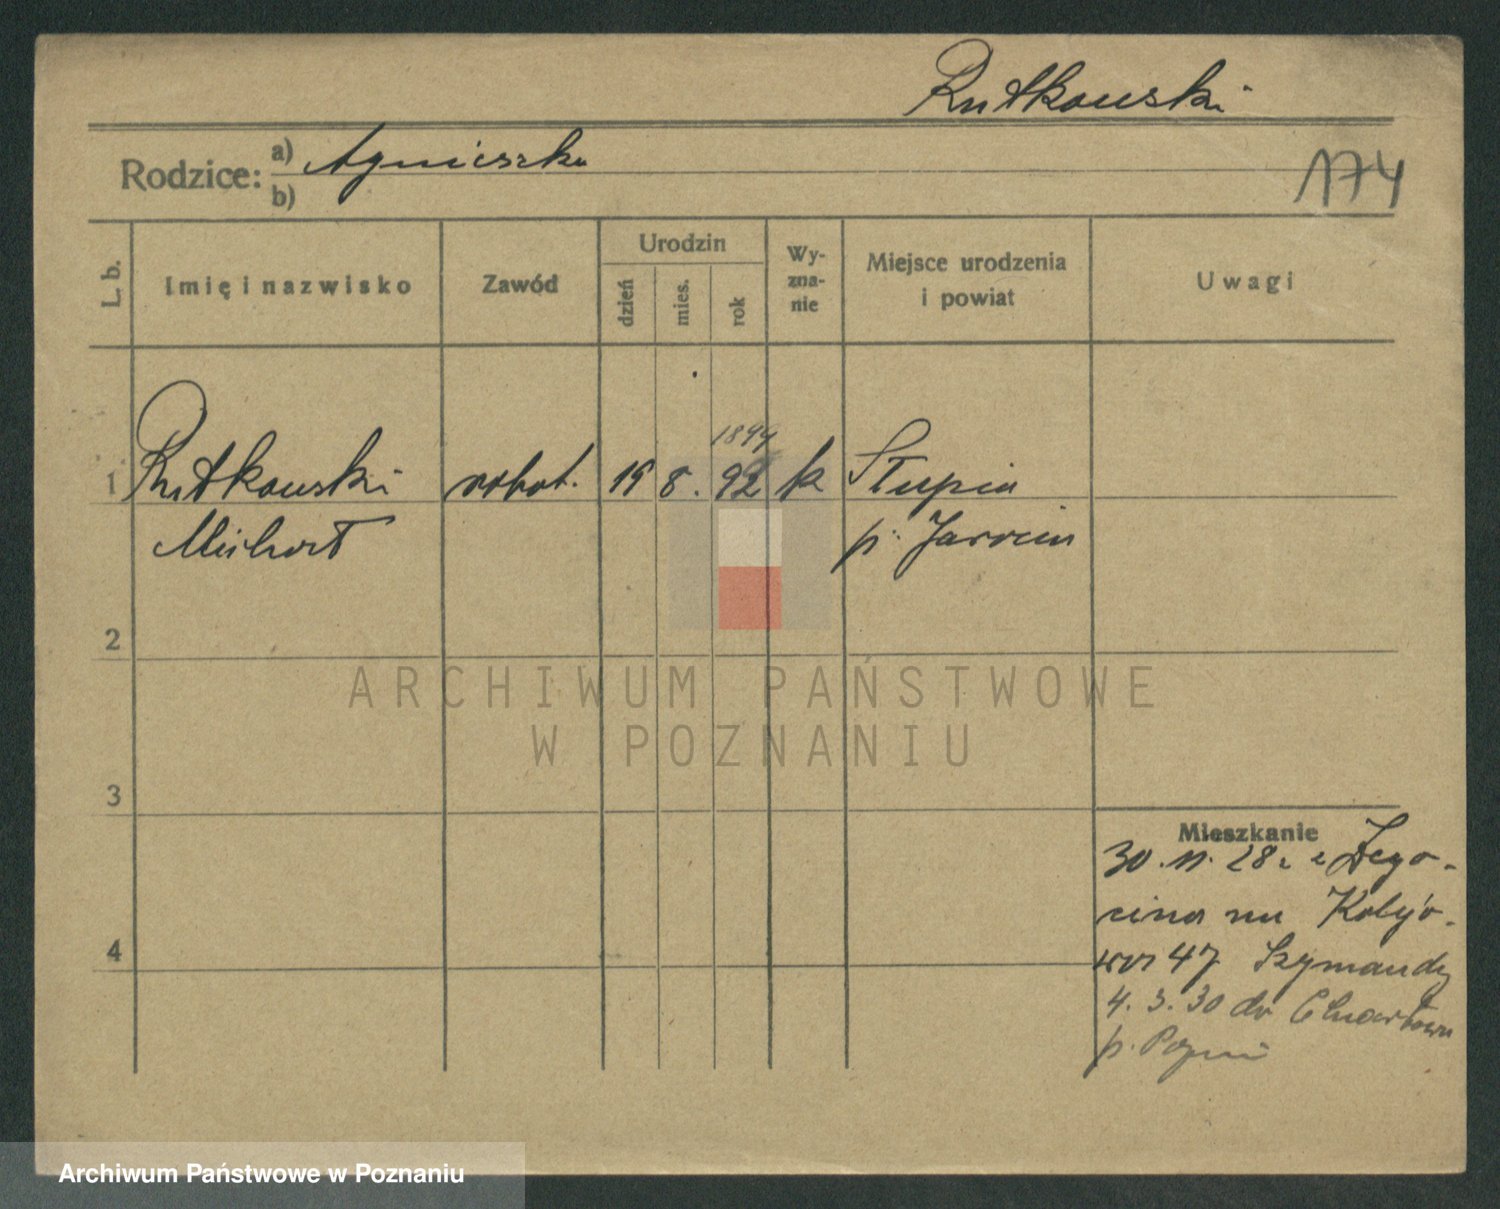 Rutkowski
Rodzice: a) Agnieszka
b)
174
L. b.
Imię i nazwisko
Zawód
Urodzin
dzień
mies.
rok
Wy-
zna-
nie
Miejsce urodzenia
i powiat
Uwagi
1894
1 Rutkowski robot. 19 8. 92 k Słupia
Michał p. Jarocin
2
3
4
Mieszkanie
30.11.28 z Żego-
cina na
47 Szymandy
4.3.30 do Chwartown
p. Pozn
ARCHIWUM PAŃSTWOWE
W POZNANIU
Archiwum Państwowe w Poznaniu